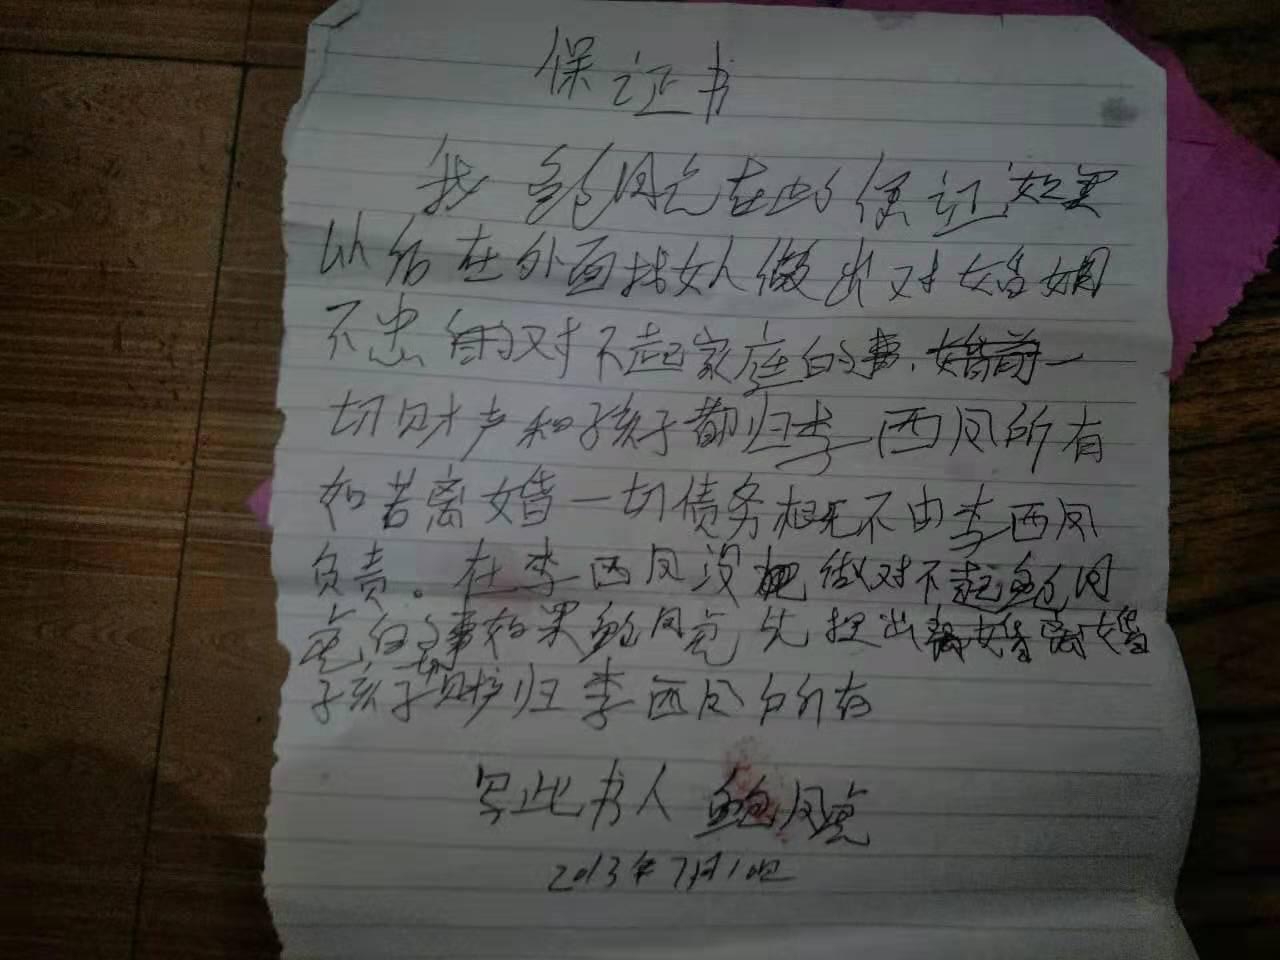 保证书
我鲍凤亮在此保证如果
以后在外面找女人做出对婚姻
不忠对不起家庭的事，婚前一
切财产和孩子都归李西凤所有
如若离婚一切债务概不由李西凤
负责。在李西凤没做对不起鲍凤
亮的事如果鲍凤亮先提出离婚
孩子一切财产归李西凤所有
写此书人 鲍凤亮
2013年7月1